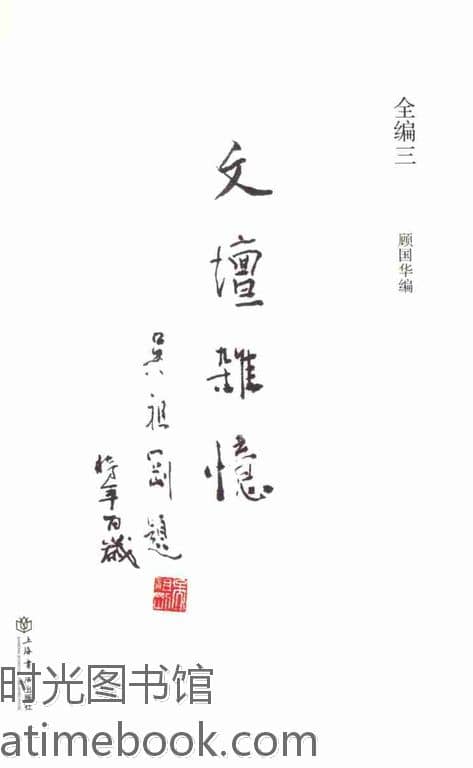 全编三
顾国华编
文壇雜憶
吳祖剛題
時年百歲
上海书店出版社
时光图书馆
atimebook.com